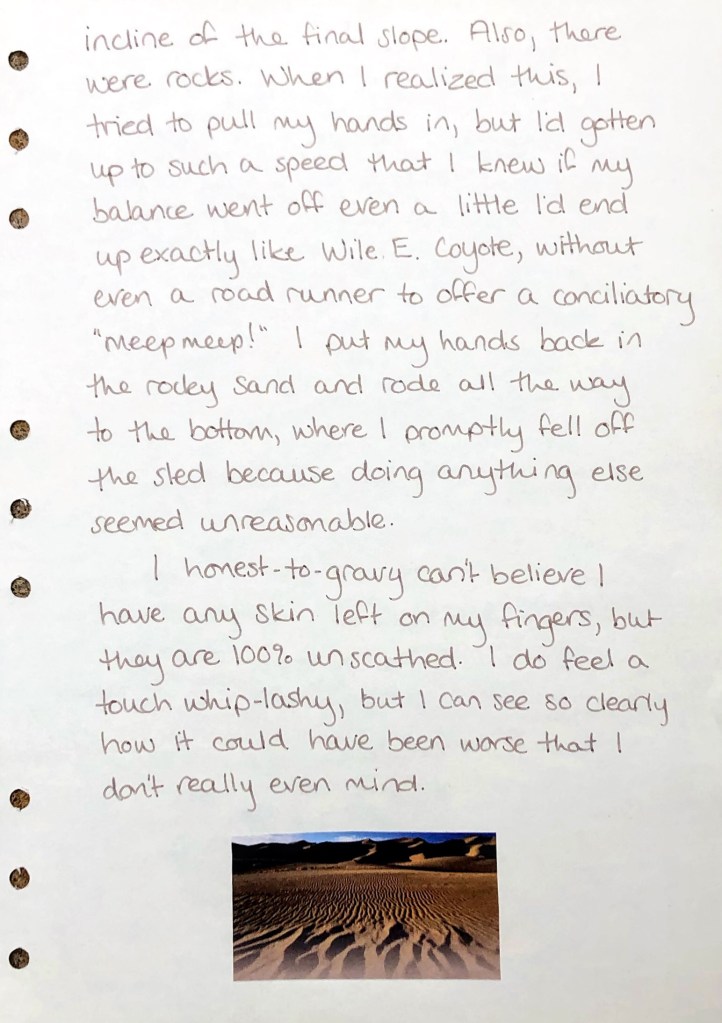 incline of the final slope. Also, there
were rocks. When I realized this, I
tried to pull my hands in, but I'd gotten
up to such a speed that I knew if my
balance went off even a little I'd end
up exactly like Wile E. Coyote, without
even a road runner to offer a conciliatory
"meep meep!" I put my hands back in
the rocky sand and rode all the way
to the bottom, where I promptly fell off
the sled because doing anything else
seemed unreasonable.
I honest-to-gravy can't believe I
have any skin left on my fingers, but
they are 100% unscathed. I do feel a
touch whip-lashy, but I can see so clearly
how it could have been worse that I
don't really even mind.